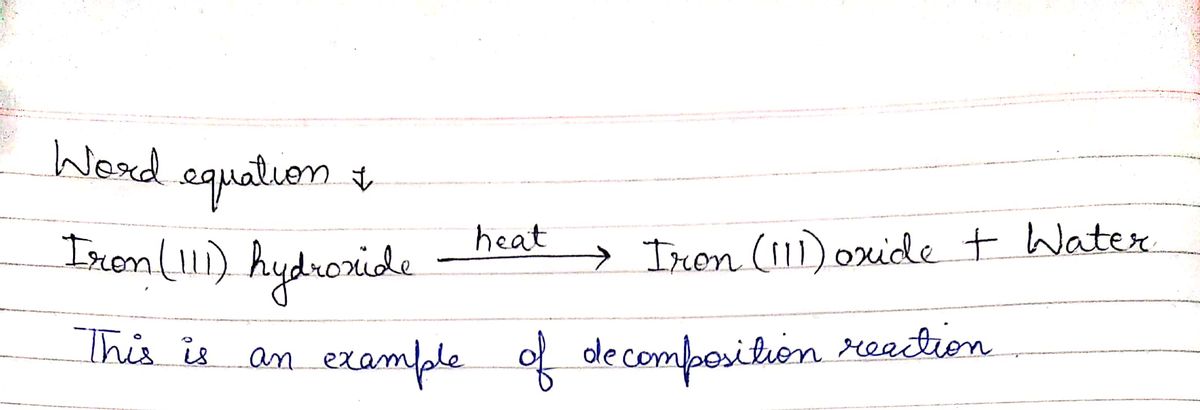 Word equation ↓
Iron(111) hydroxide heat → Iron (111) oxide + Water.
This is an example of decomposition reaction.